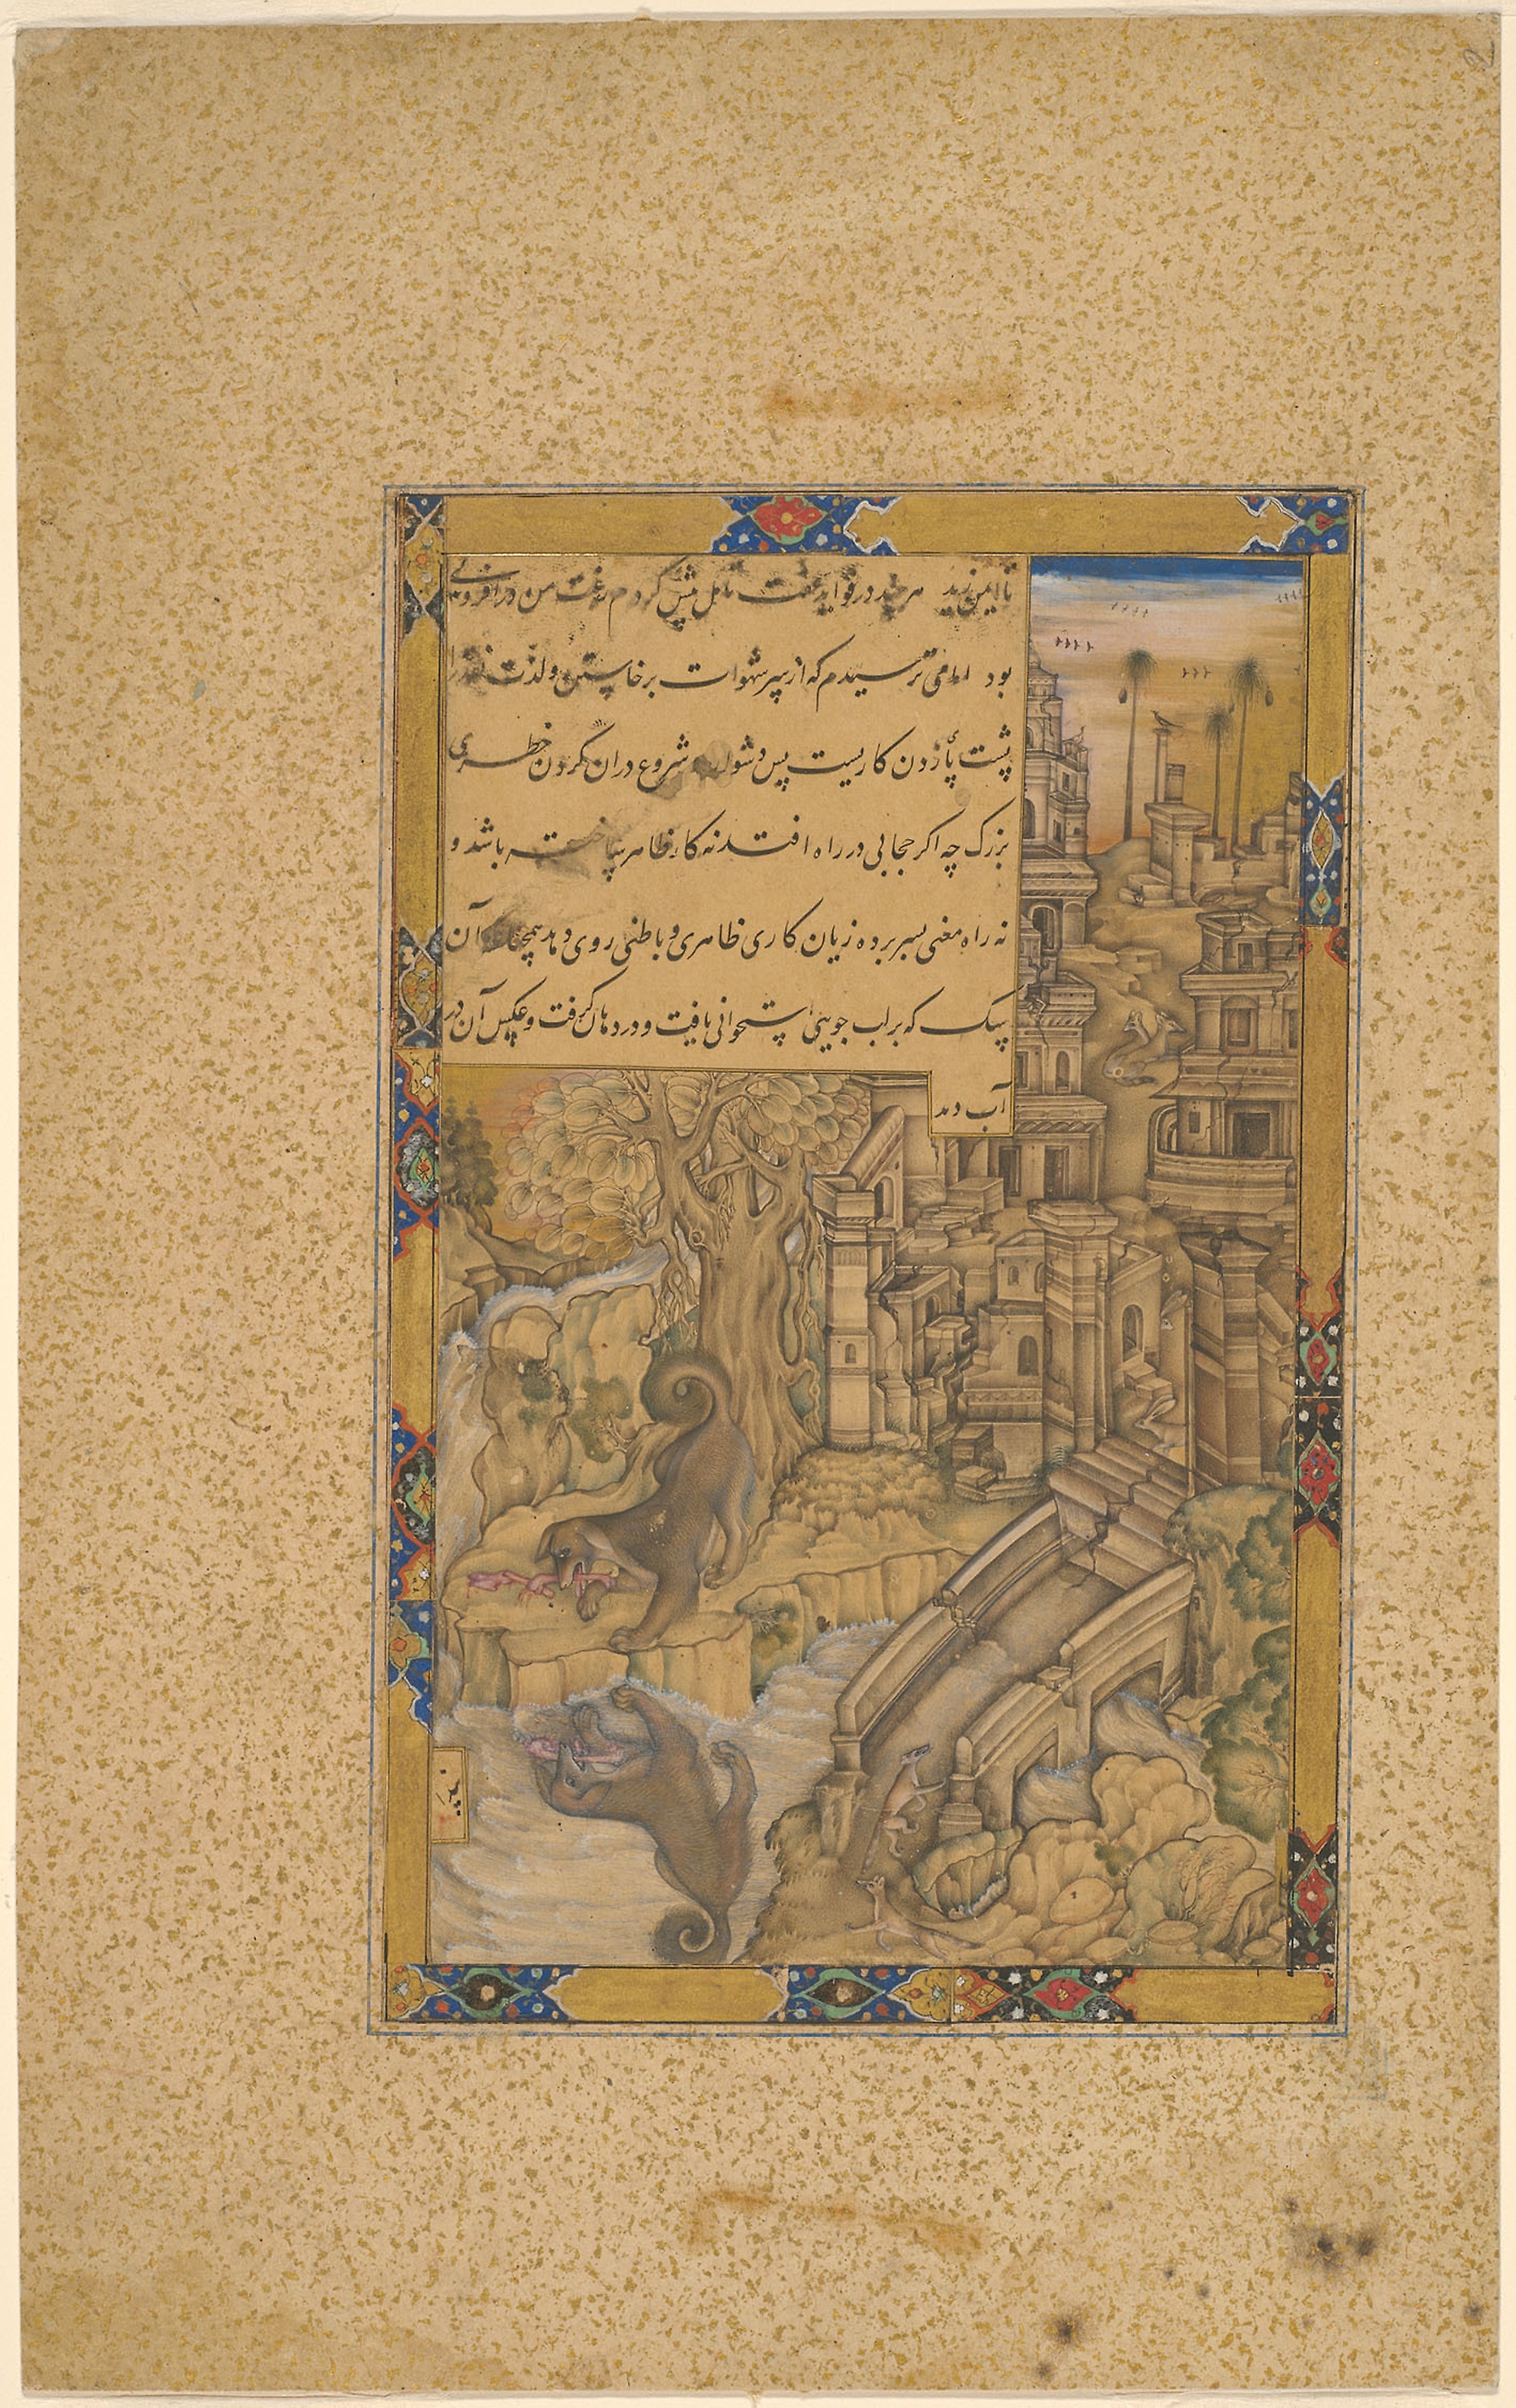 هر چند در فواید عفت تامل بیش کردم رغبت من در افزونی
بود اما می ترسیدم که از سر شهوات برخاستن و لذت نقد را
پشت پا زدن کاریست بس دشوار و شروع دران کردن خطری
بزرگ چه اگر حجابی در راه افتد نه کار ظاهر ساخته باشد و
نه راه معنی بسر برده زیان کاری ظاهری و باطنی روی دهد همچنانکه آن
سک که بر لب جویی استخوانی یافت و در دهان گرفت و عکس آن در
آب دید